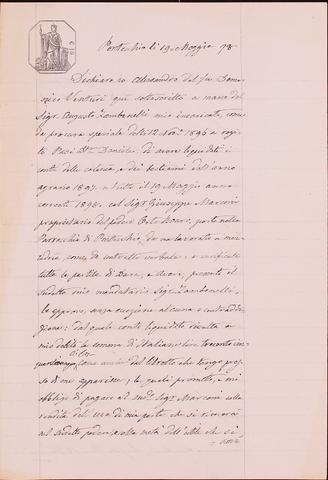 Pontecchio li 19 Maggio 98
Dichiaro io Alessandro del fu Dome-
nico Venturi qui sottoscritto a mezzo del
Sigr. Augusto Zambonelli mio incaricato, come
da procura speciale del 12 Nov. 1896 a rogito
Dr. Daniele, di avere liquidati i
conti delle colonie e dei bestiami dell'anno
agrario 1897 a tutto il 19 Maggio anno
corrente 1898, col Sigr. Giuseppe Marconi
proprietario del podere posto nella
Parrocchia di Pontecchio, da me lavorato a mez-
zadria, come da contratto verbale: e verificate
tutte le partite di Dare, e Avere, presente il
suddetto mio mandatario Sigr. Zambonelli,
le approvo, senza eccezione alcuna e contraddi-
zione: dal quale conto liquidato risulta a
mio debito la somma di Italiane lire trecento
come anche dal libretto che tengo presso
di me apparisce; la quale prometto, e mi
obbligo di pagare al sudo. Sigr. Marconi colla
rendita dell' uva di mia parte che si ricaverà
al suddetto podere, colla metà dell' utile che si